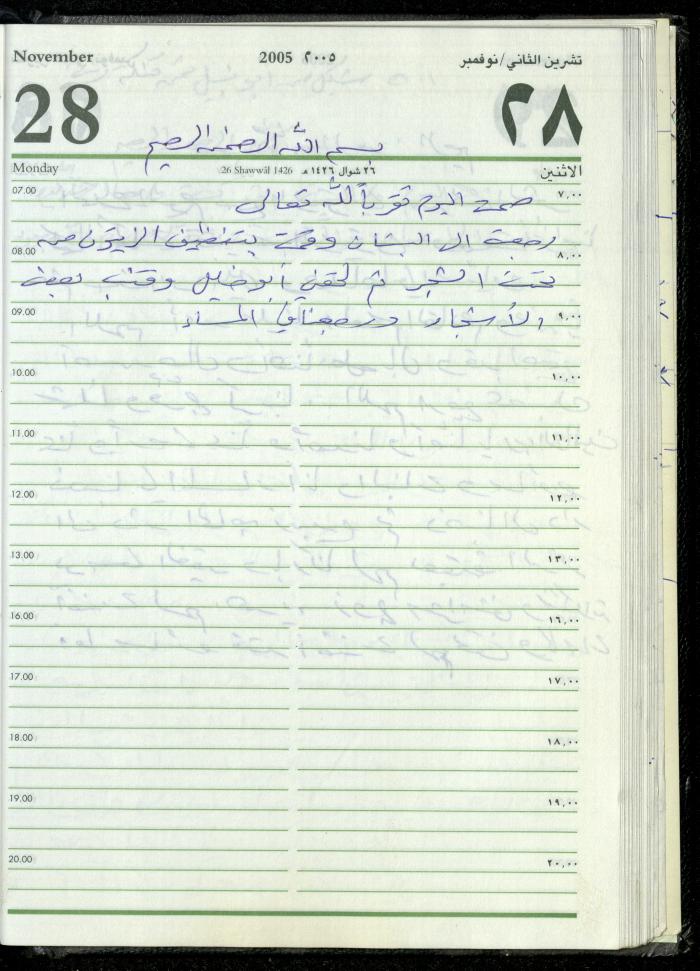 November 2005 ٢٠٠٥ تشرين الثاني/نوفمبر
28 ٢٨
بسم الله الرحمن الرحيم
Monday 26 Shawwāl 1426 ٢٦ شوال ١٤٢٦ هـ الاثنين
07.00 ٧,٠٠
صمت اليوم تقرباً لله تعالى
رجعت الى البستان وقمت بتنظيف الزيتون من
08.00 ٨,٠٠
تحت الشجر ثم لحقني أبو خليل وقنب بعض
09.00 ٩,٠٠
الأشجار ورجعنا في المساء
10.00 ١٠,٠٠
11.00 ١١,٠٠
12.00 ١٢,٠٠
13.00 ١٣,٠٠
16.00 ١٦,٠٠
17.00 ١٧,٠٠
18.00 ١٨,٠٠
19.00 ١٩,٠٠
20.00 ٢٠,٠٠